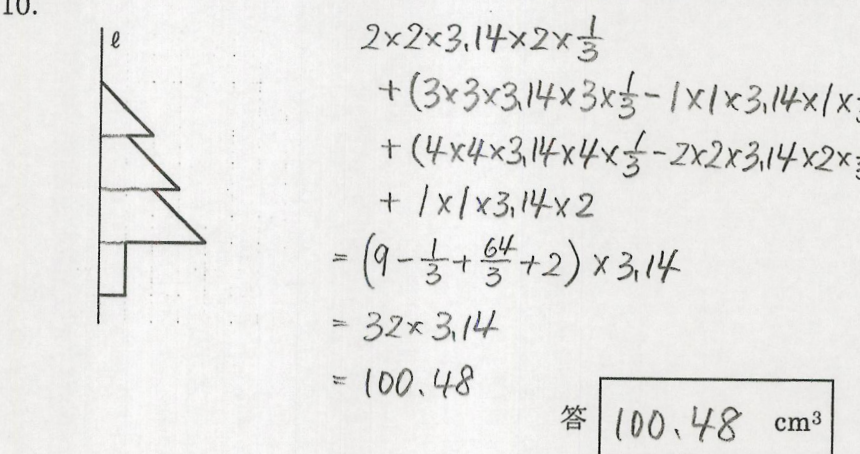 10.
ℓ
2×2×3.14×2×1/3
+(3×3×3.14×3×1/3-1×1×3.14×1×
+(4×4×3.14×4×1/3-2×2×3.14×2×
+1×1×3.14×2
=(9-1/3+64/3+2)×3.14
=32×3.14
=100.48
答 100.48 cm³